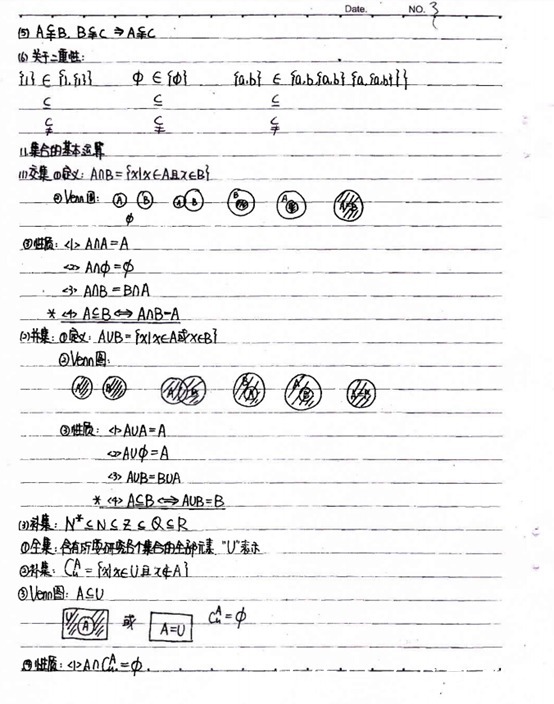 Date. NO. 3
(5) A⫋B, B⫋C ⇒ A⫋C
(6) 关于二重性:
{1} ∈ {1,{1}} ϕ ∈ {ϕ} {a,b} ∈ {a,b,{a,b},{a,{a,b}}}
⊆ ⊆ ⊆
⫋ ⫋ ⫋
11.集合的基本运算
(1)交集 ①定义: A∩B={x|x∈A且x∈B}
②Venn图: A B A B B A A B A=B
ϕ
③性质: <1> A∩A=A
<2> A∩ϕ=ϕ
<3> A∩B=B∩A
* <4> A⊆B ⟺ A∩B=A
(2)并集: ①定义: A∪B={x|x∈A或x∈B}
②Venn图:
A B A B B A A B A=B
③性质: <1> A∪A=A
<2> A∪ϕ=A
<3> A∪B=B∪A
* <4> A⊆B ⟺ A∪B=B
(3)补集: N* ⊆ N ⊆ Z ⊆ Q ⊆ R
①全集: 含有所要研究各个集合的全部元素 "U"表示
②补集: CᵤA={x|x∈U且x∉A}
③Venn图: A⊆U
U A 或 A=U CᵤA=ϕ
④性质: <1> A∩CᵤA=ϕ.